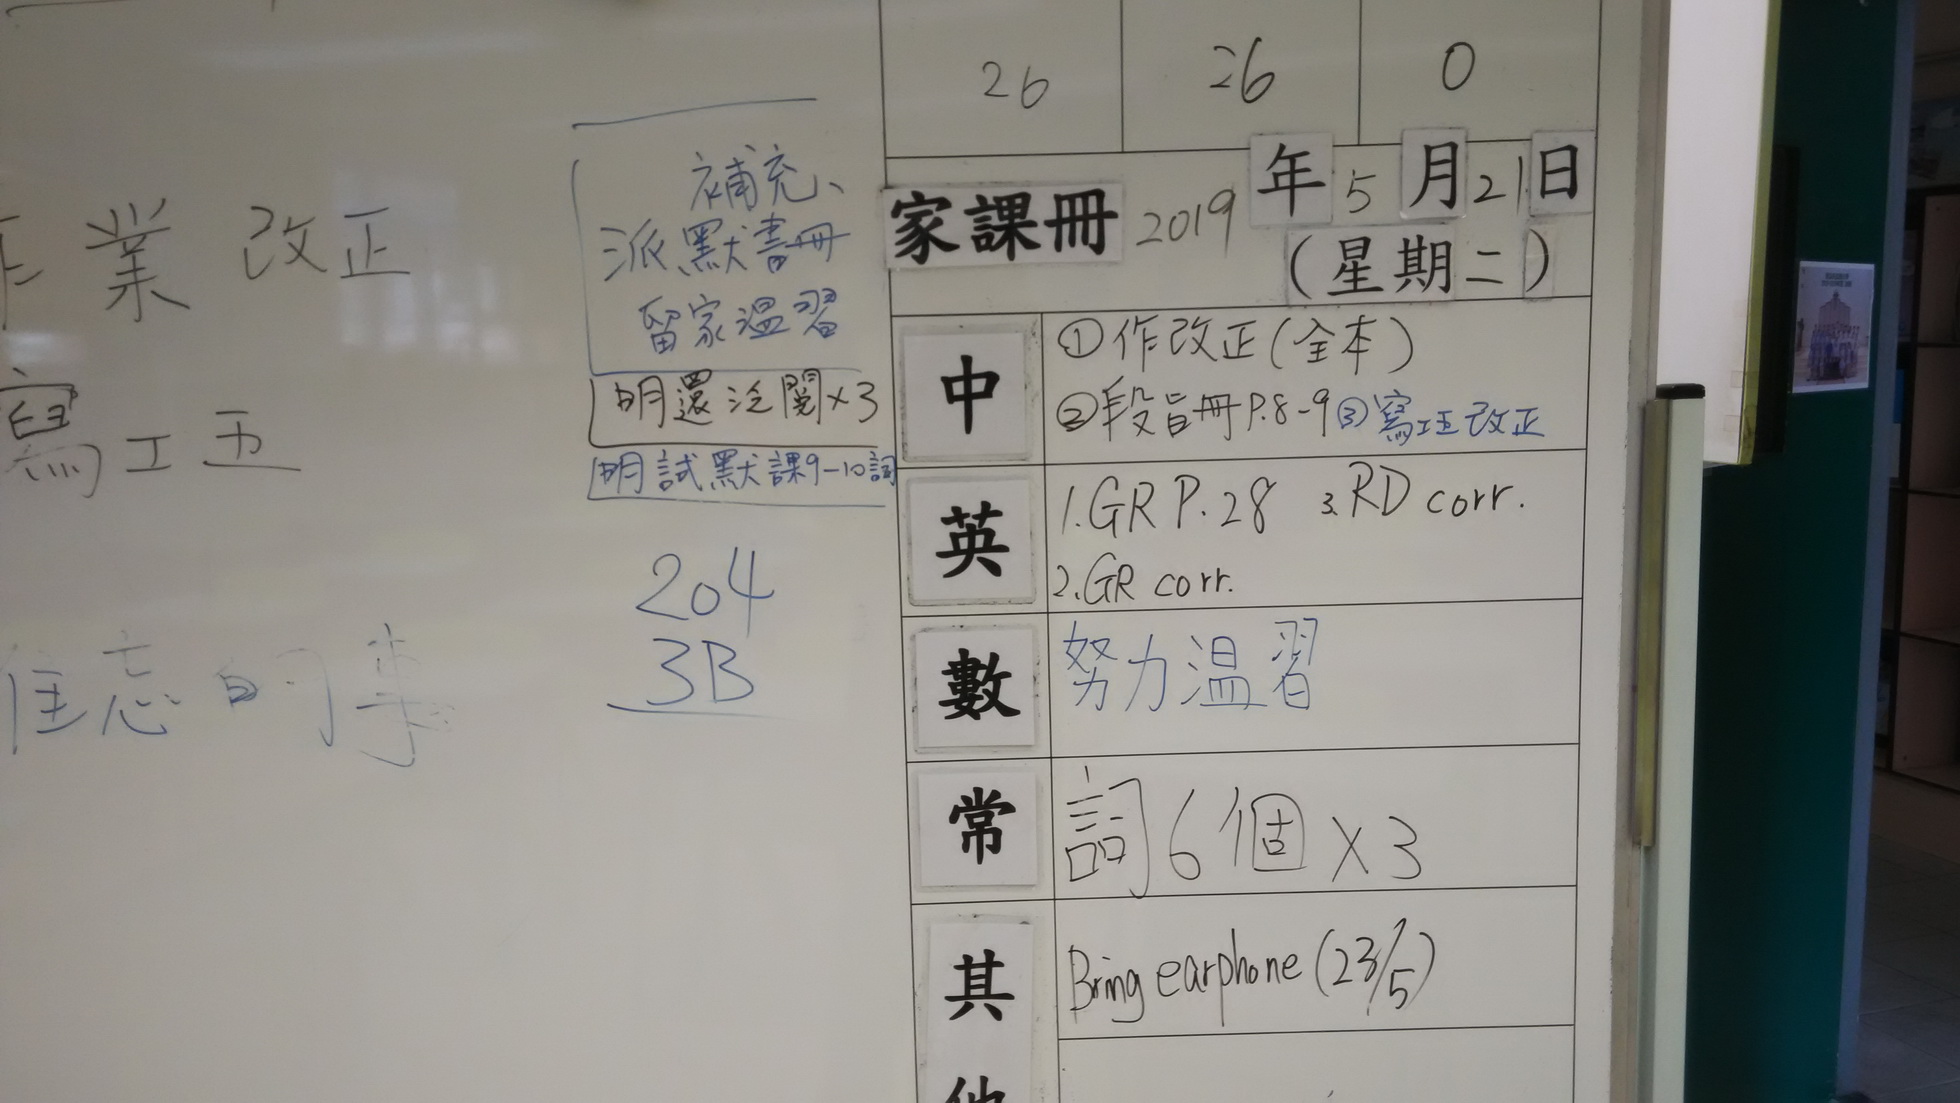 作業 改正
寫工五
難忘的事
補充、
派默書冊
留家溫習
明還泛閱x3
明試默課9-10詞
204
3B
26 26 0
家課冊 2019年5月21日
(星期二)
中 ①作改正(全本)
②段旨冊P.8-9 ③寫工五改正
英 1.GR P.28 3.RD corr.
2.GR corr.
數 努力溫習
常 詞6個x3
其他 Bring earphone (23/5)